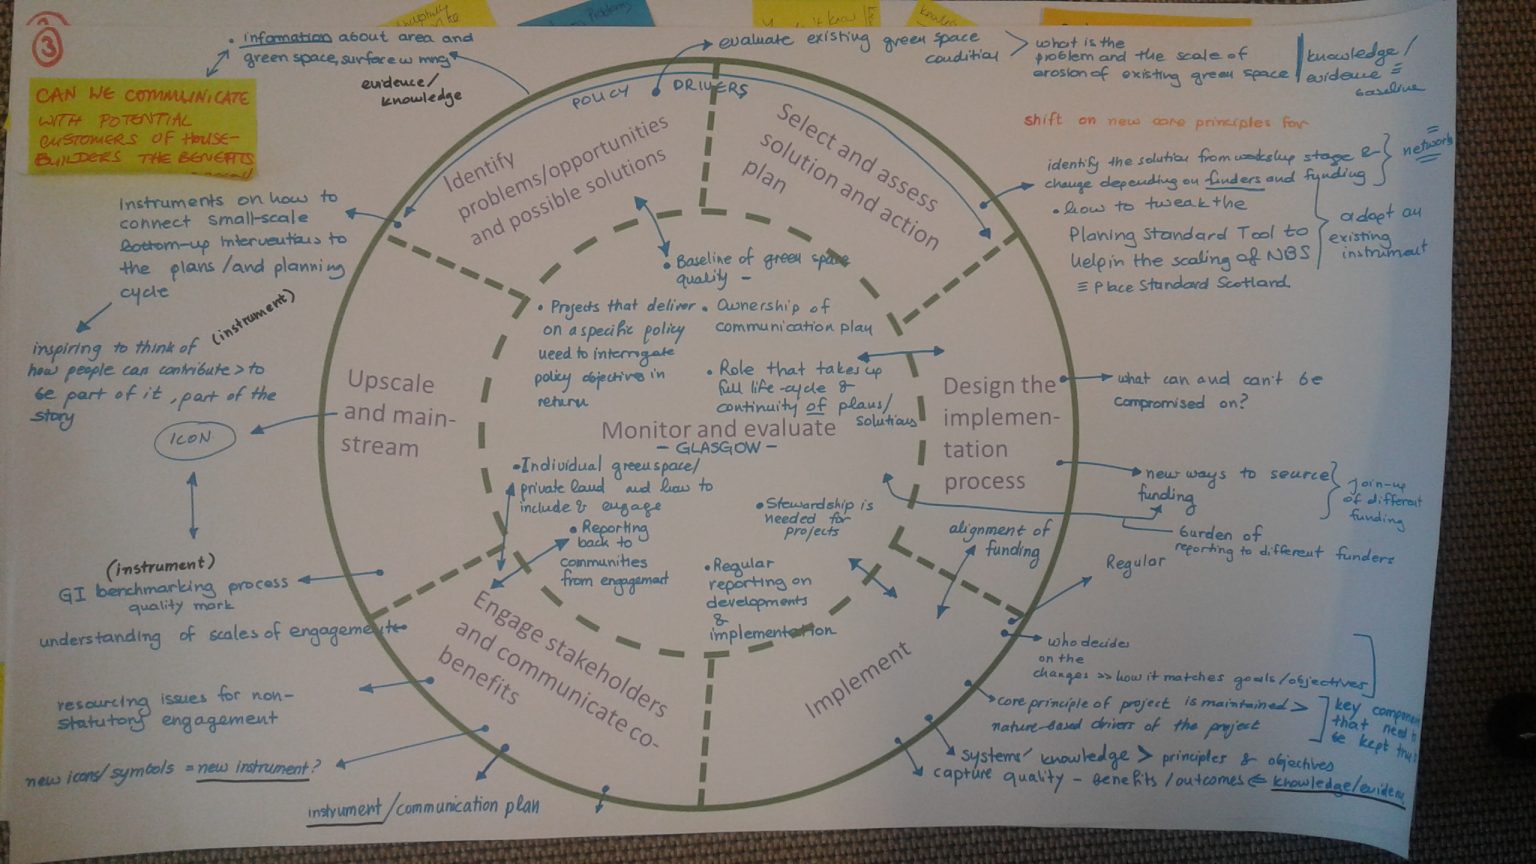 3
CAN WE COMMUNICATE
WITH POTENTIAL
CUSTOMERS OF HOUSE-
BUILDERS THE BENEFITS
• information about area and
green space, surface w mng
evidence/
knowledge
POLICY DRIVERS
evaluate existing green space
condition
what is the
problem and the scale of
erosion of existing green space
knowledge/
evidence =
baseline
shift on new core principles for
identify the solution from workshop stage &
change depending on funders and funding
network
• how to tweak the
Planing Standard Tool to
help in the scaling of NBS
≡ Place Standard Scotland.
adapt an
existing
instrument
Identify
problems/opportunities
and possible solutions
Select and assess
solution and action
plan
Instruments on how to
connect small-scale
bottom-up interventions to
the plans/and planning
cycle
(instrument)
inspiring to think of
how people can contribute > to
be part of it, part of the
story
ICON
(instrument)
GI benchmarking process
quality mark
understanding of scales of engagement
resourcing issues for non-
statutory engagement
new icons/symbols = new instrument?
instrument/communication plan
Upscale
and main-
stream
• Baseline of green space
quality –
• Projects that deliver
on a specific policy
need to interrogate
policy objective in
return
• Ownership of
communication plan
• Role that takes up
full life-cycle &
continuity of plans/
solutions
Monitor and evaluate
– GLASGOW –
• Individual greenspace/
private land and how to
include & engage
• Reporting
back to
communities
from engagement
• Stewardship is
needed for
projects
• Regular
reporting on
developments
&
implementation
Design the
implemen-
tation
process
alignment of
funding
what can and can't be
compromised on?
new ways to source
funding
join-up
of different
funding
burden of
reporting to different funders
Regular
Engage stakeholders
and communicate co-
benefits
Implement
who decides
on the
changes >> how it matches goals/objectives
core principle of project is maintained >
nature-based drivers of the project
key
that need
be kept
systems' knowledge > principles & objectives
capture quality – benefits/outcomes ⇐ knowledge/